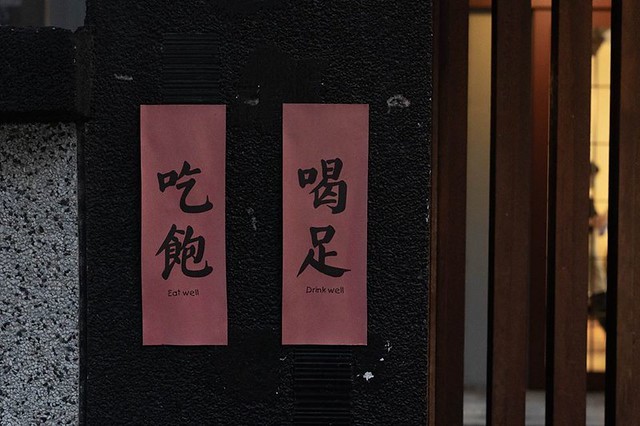 吃飽
Eat well
喝足
Drink well